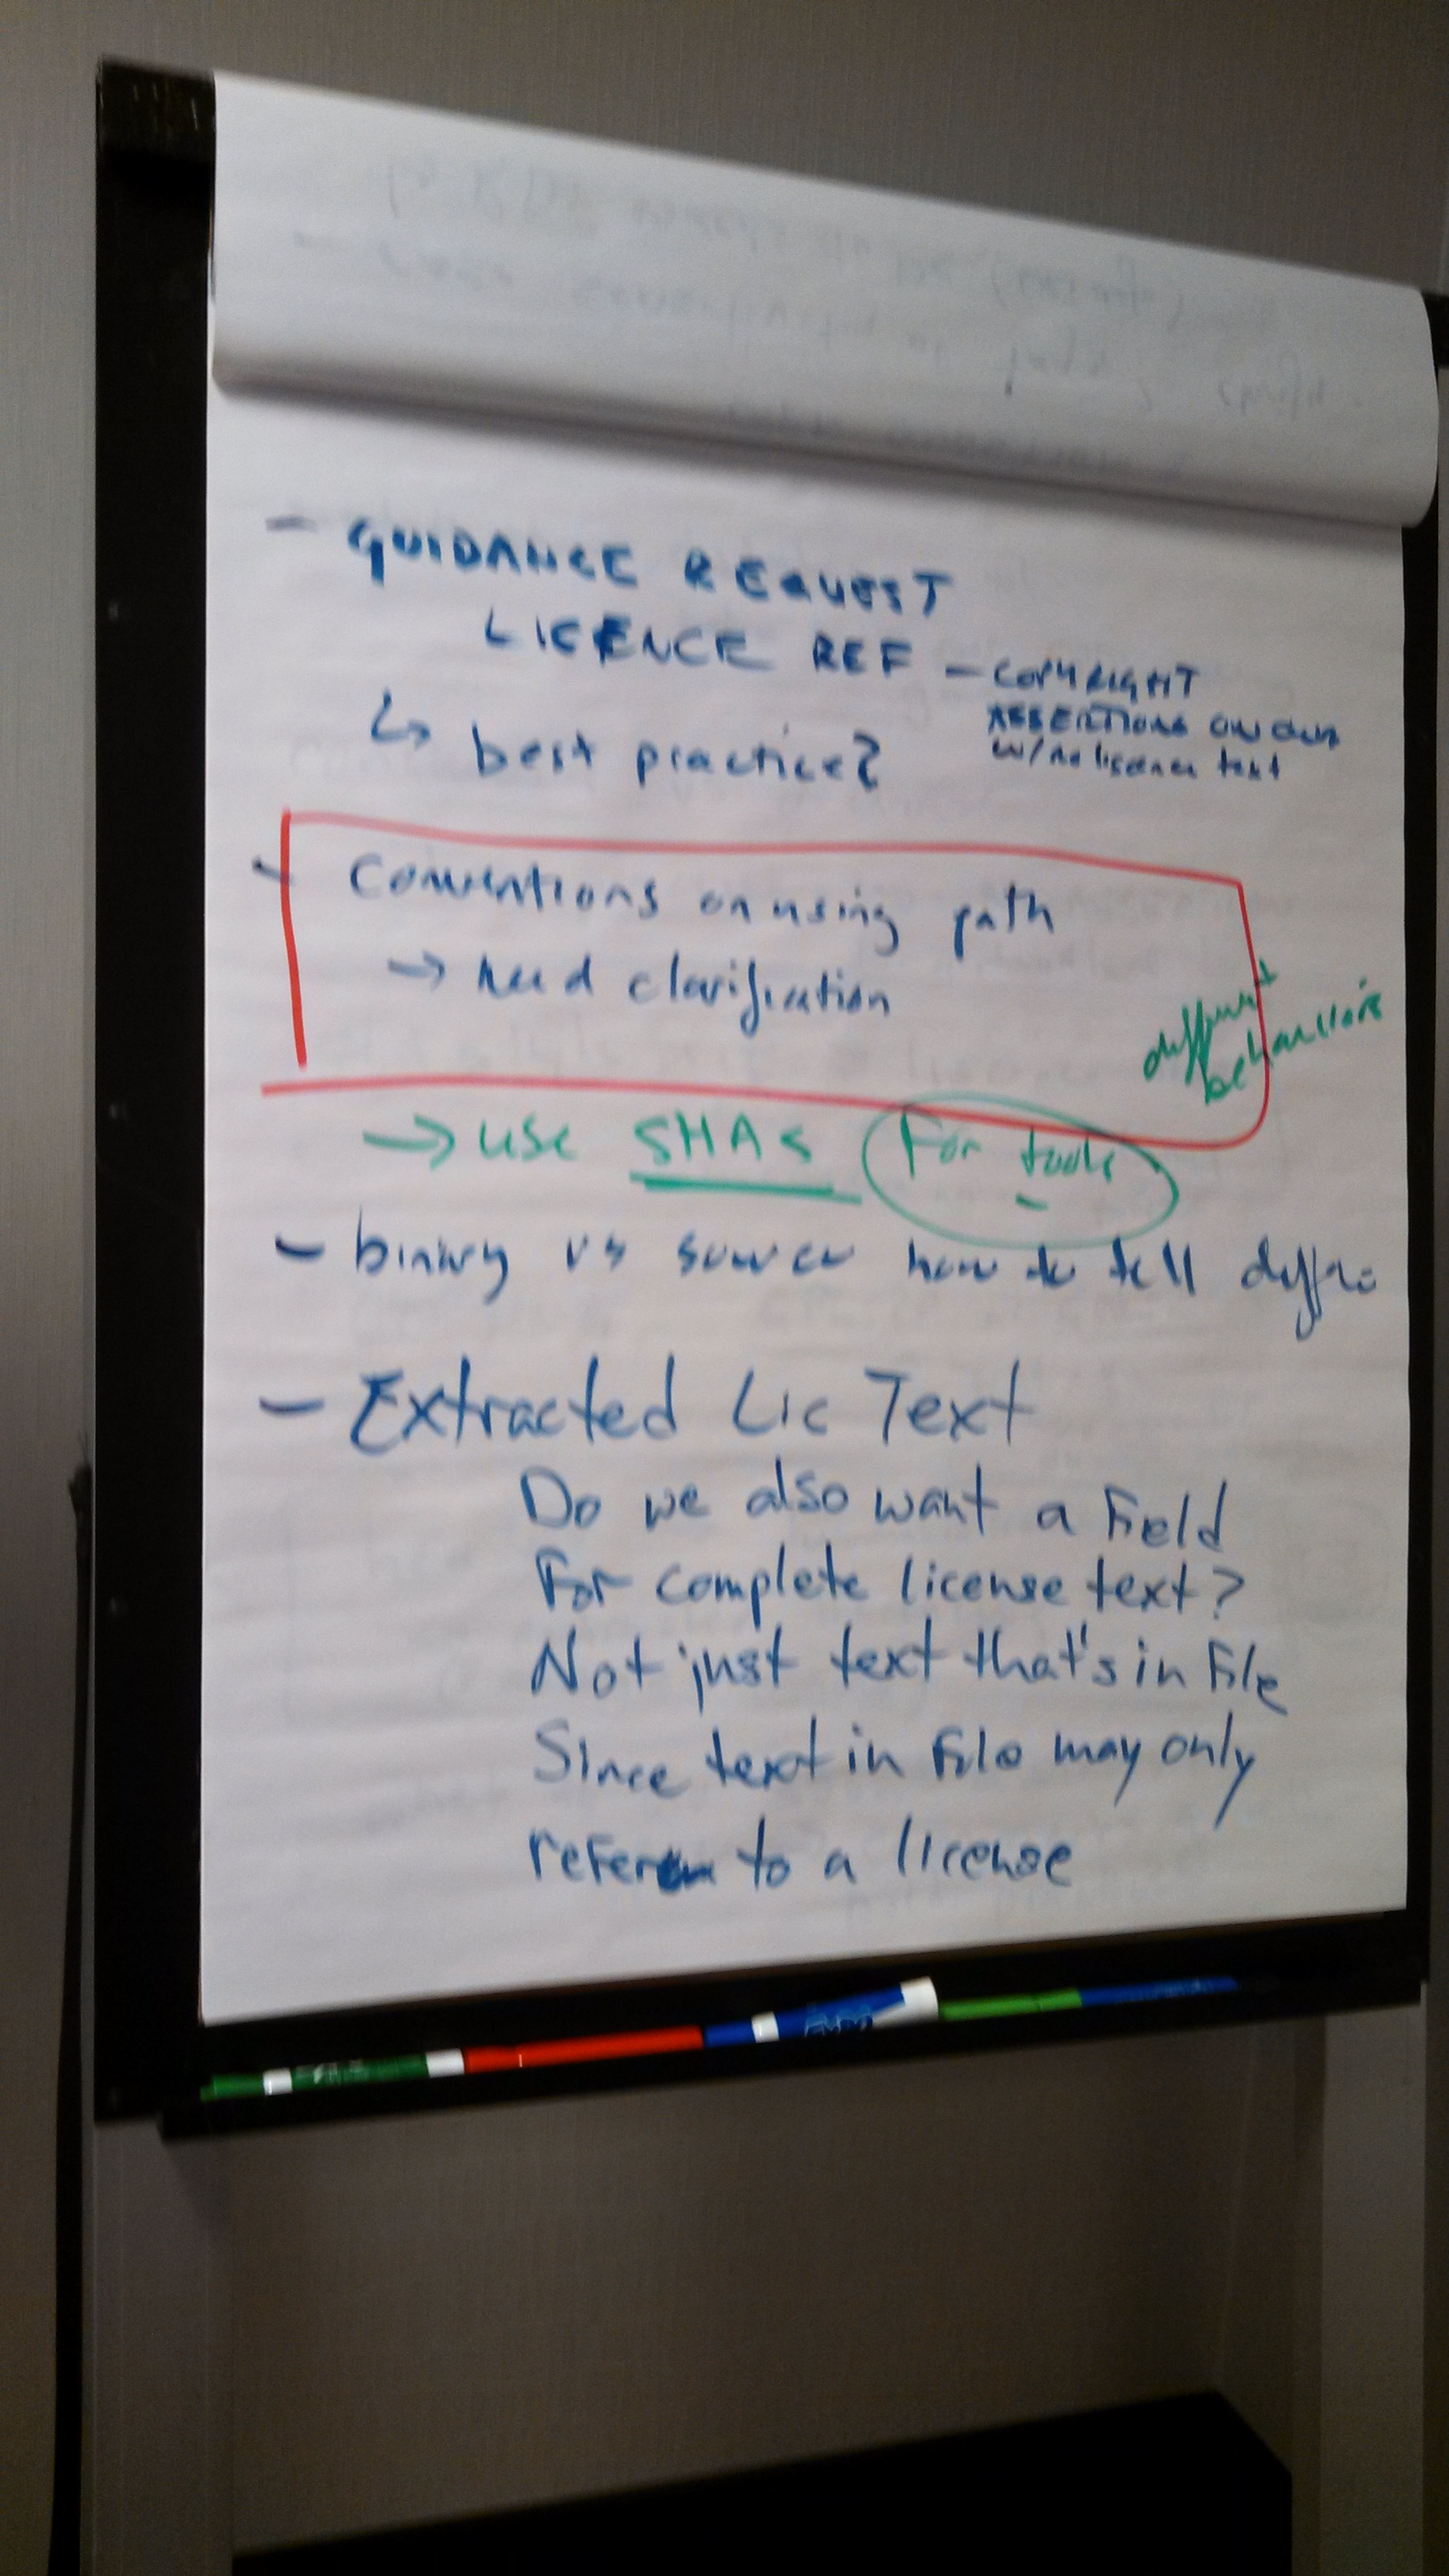 - GUIDANCE REQUEST
LICENCE REF - COPYRIGHT
ASSERTIONS ON OWN
w/no license text
↳ best practice?
- Conventions on using path
→ need clarification
different
behaviors
→ use SHAs for tools
- binary vs source how to tell
- Extracted Lic Text
Do we also want a Field
For complete license text?
Not just text that's in File
Since text in File may only
refer to a license
EXPO